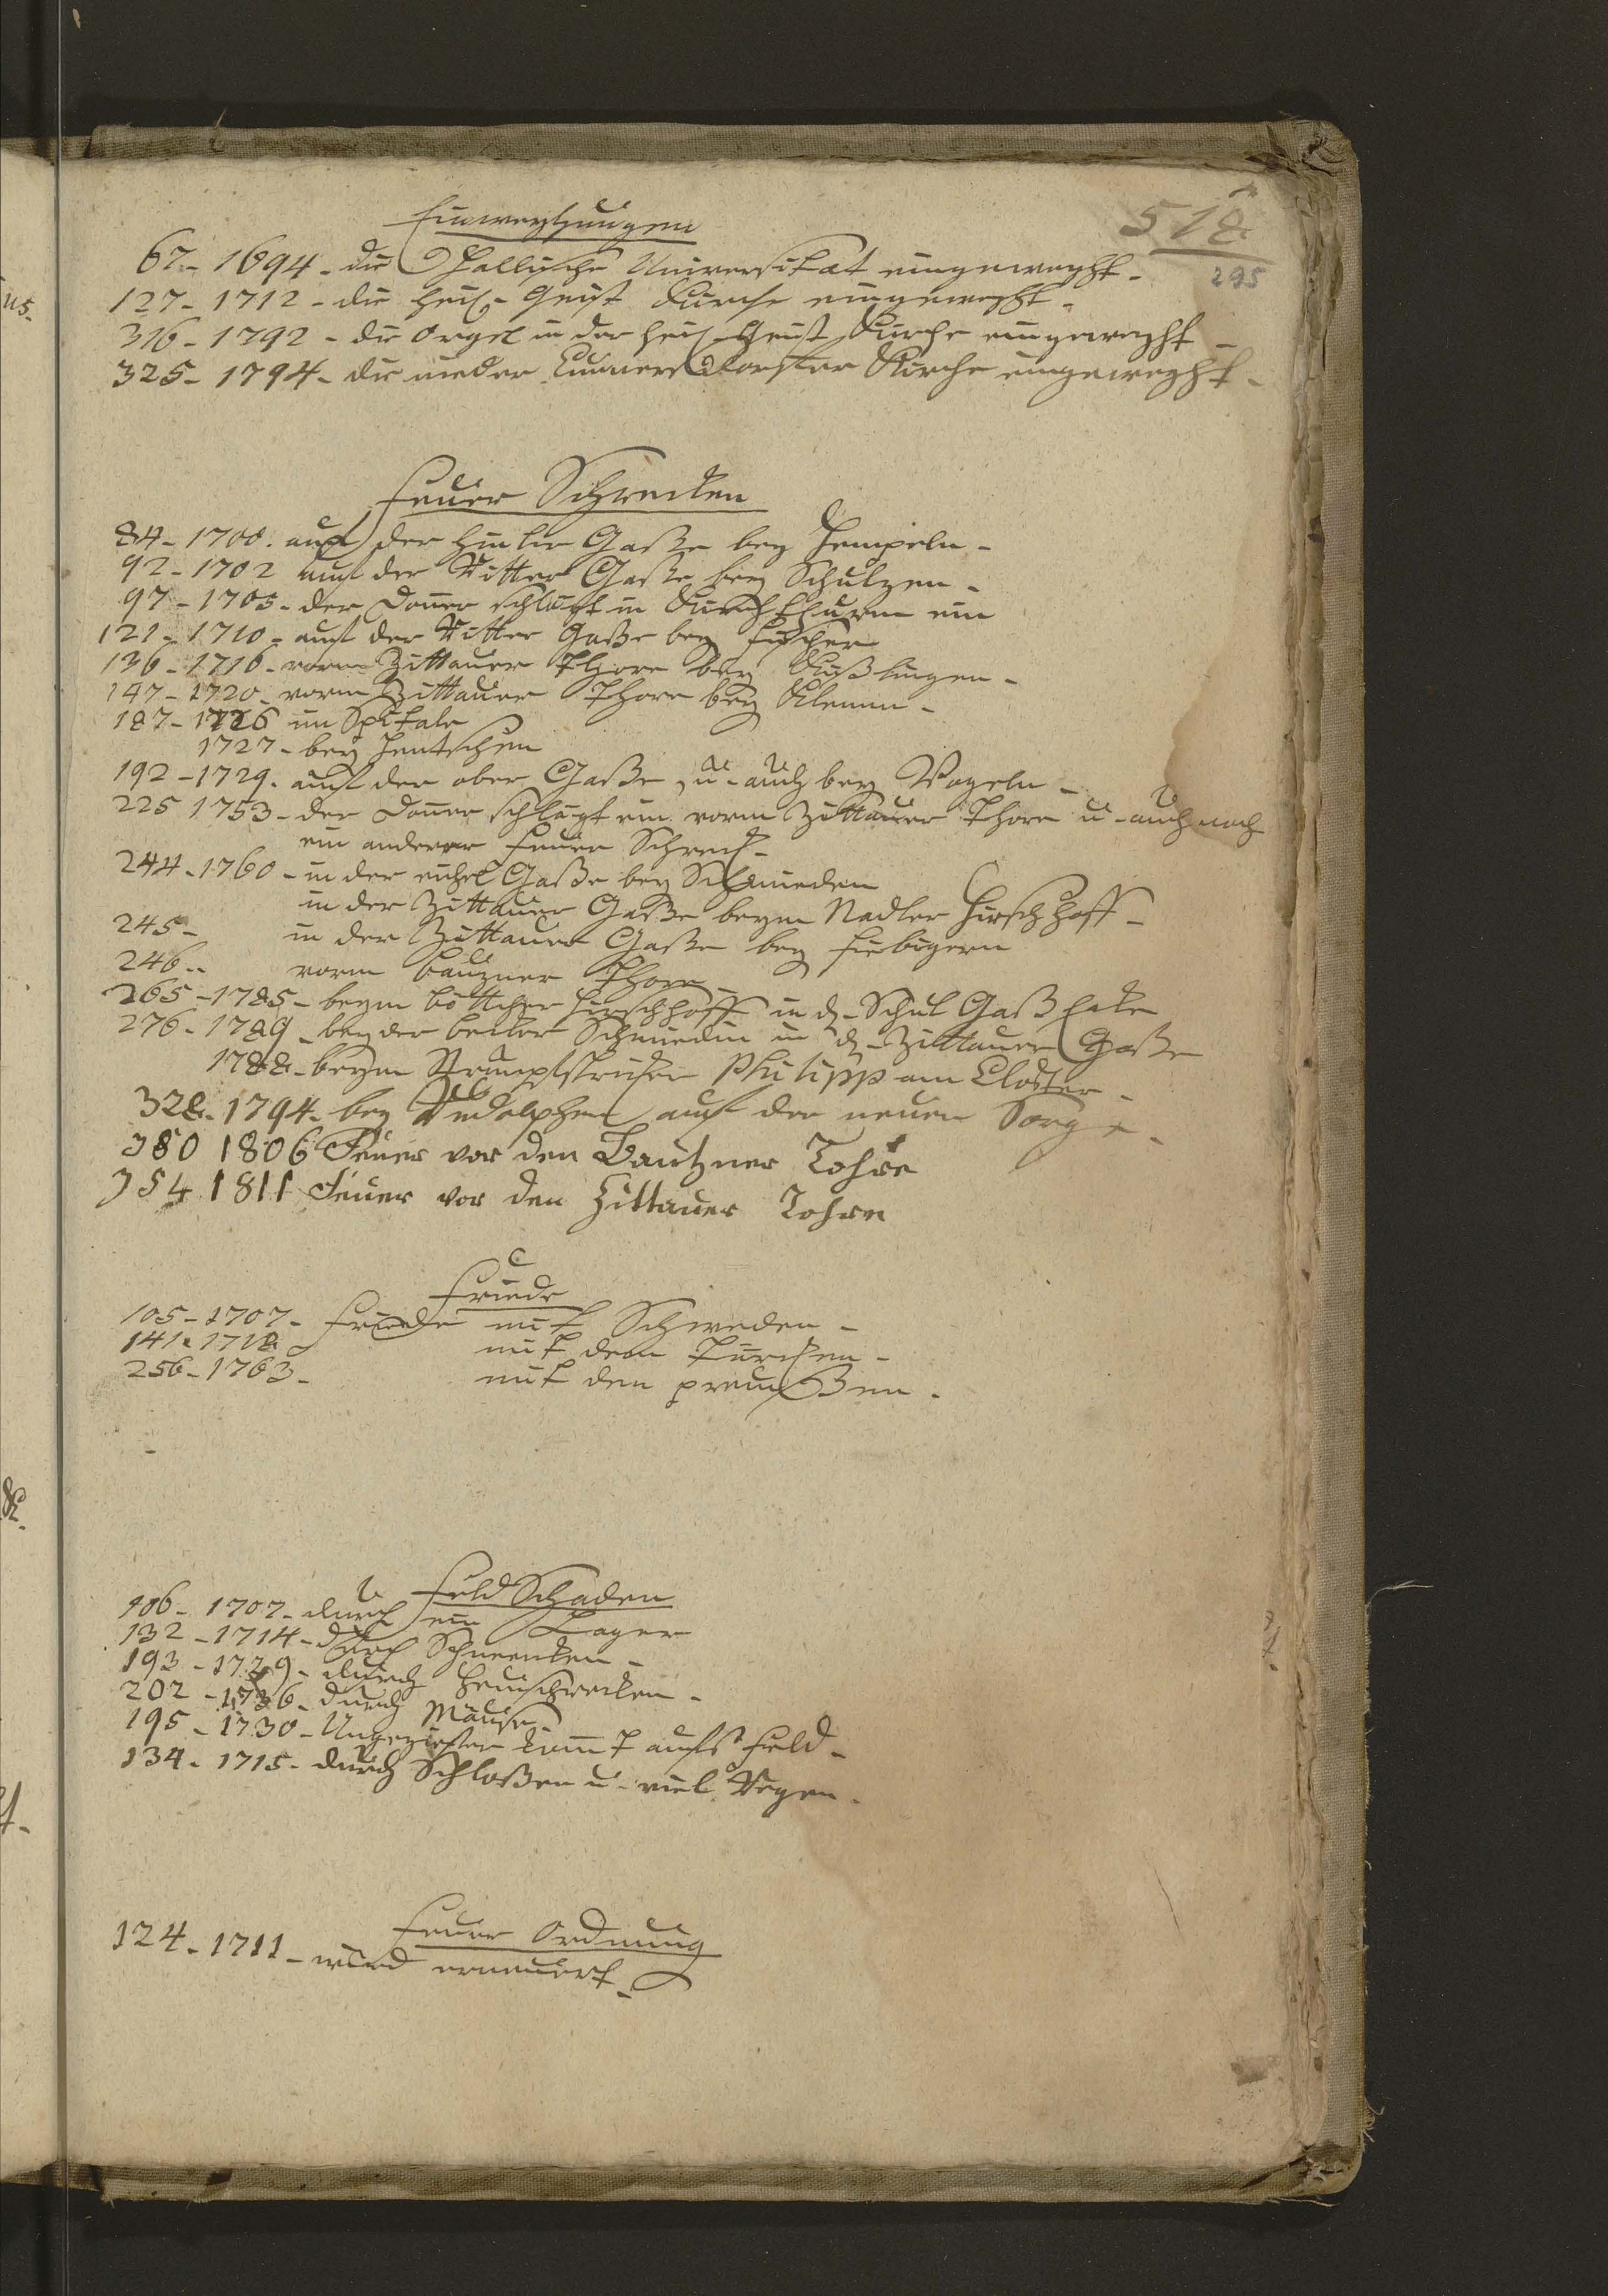 518
295
Einweyhungen
67 - 1694 - die Hallische Universitæt eingeweyht -
127 - 1712 - die heil - Geist Kirche eingeweyht -
316 - 1792 - die Orgel in der heil - Geist Kirche eingeweyht -
325 - 1794 - die nieder Cunnersdorffer Kirche eingeweyht -
Feuer Schrecken
84 - 1700. auf der Hinter Gaße bey Hempeln -
92 - 1702 auf der Ritter Gaße bey Schulzen -
97 - 1705 - der Doner schlägt in Kirchthurm ein
121 - 1710 - auf der Ritter Gaße bey Fischer
136 - 1716 - vorm Zittauer Thore bey Kießlingen -
147 - 1720 - vorm Zittauer Thore bey Klemm -
187 - 1726 im Spitale
1727 - bey Jentschen
192 - 1729. auf der ober Gaße, u - auch bey Vogeln -
225 1753 - der Doner schlägt ein vorm Zittauer Thore u - auch noch
ein anderer Feuer Schreck -
244 - 1760 - in der nickel Gaße bey Schmieden
in der Zittauer Gaße beym Nadler Hirschhoff -
245 - in der Zittauer Gaße bey Fiebigern
246 - vorm Bauzner Thore -
265 - 1785 - beym Böttcher Hirschhoff in d - Schul Gaß Ecke
276 - 1789 - bey der Becker Schmiedin in d - Zittauer Gaße
1788 - beym Strumpfstricker Philipp am Closter -
328 - 1794 - bey Rudolphen auf der neuen Sorge -
380 1806 Feuer vor den Bautzner Tohre
354 1811 Feuer vor den Zittauer Tohre
Friede
105 - 1707 - Friede mit Schweden -
141 - 1718 mit dem Türcken -
256 - 1763 - mit den Preußen -
Feld Schaden
106 - 1707 - durch ein Lager
132 - 1714 - durch Schnecken -
193 - 1729 - durch Heuschrecken -
202 - 1736 - durch Mäuse -
195 - 1730 - Ungeziefer komt aufs Feld -
134 - 1715 - durch Schloßen u - viel Regen -
Feuer Ordnung
124 - 1711 - wird erneuert -